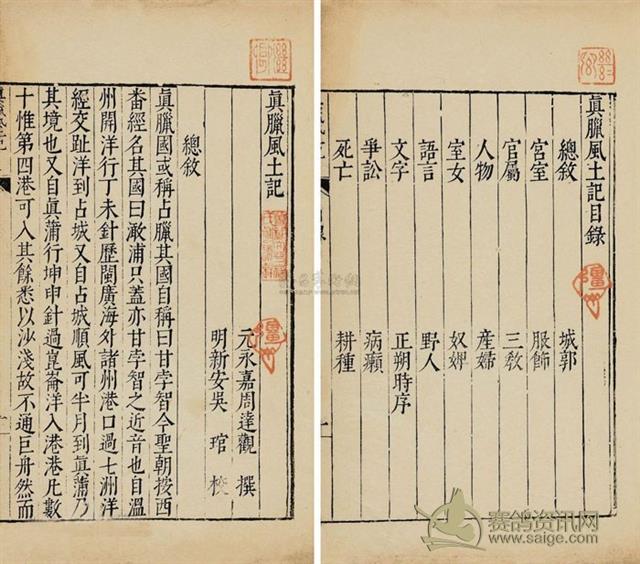 眞臘風土記目錄
總敘 城郭
宮室 服飾
官屬 三敎
人物 産婦
室女 奴婢
語言 野人
文字 正朔時序
爭訟 病癩
死亡 耕種
眞臘風土記
元永嘉周達觀 撰
明新安吳琯 校
總敘
眞臘國或稱占臘其國自稱曰甘孛智今聖朝按西
番經名其國曰澉浦只蓋亦甘孛智之近音也自溫
州開洋行丁未針歷閩廣海外諸州港口過七洲洋
經交趾洋到占城又自占城順風可半月到眞蒲乃
其境也又自眞蒲行坤申針過崑崙洋入港港凡數
十惟第四港可入其餘悉以沙淺故不通巨舟然而
赛鸽资讯网
www.saige.com